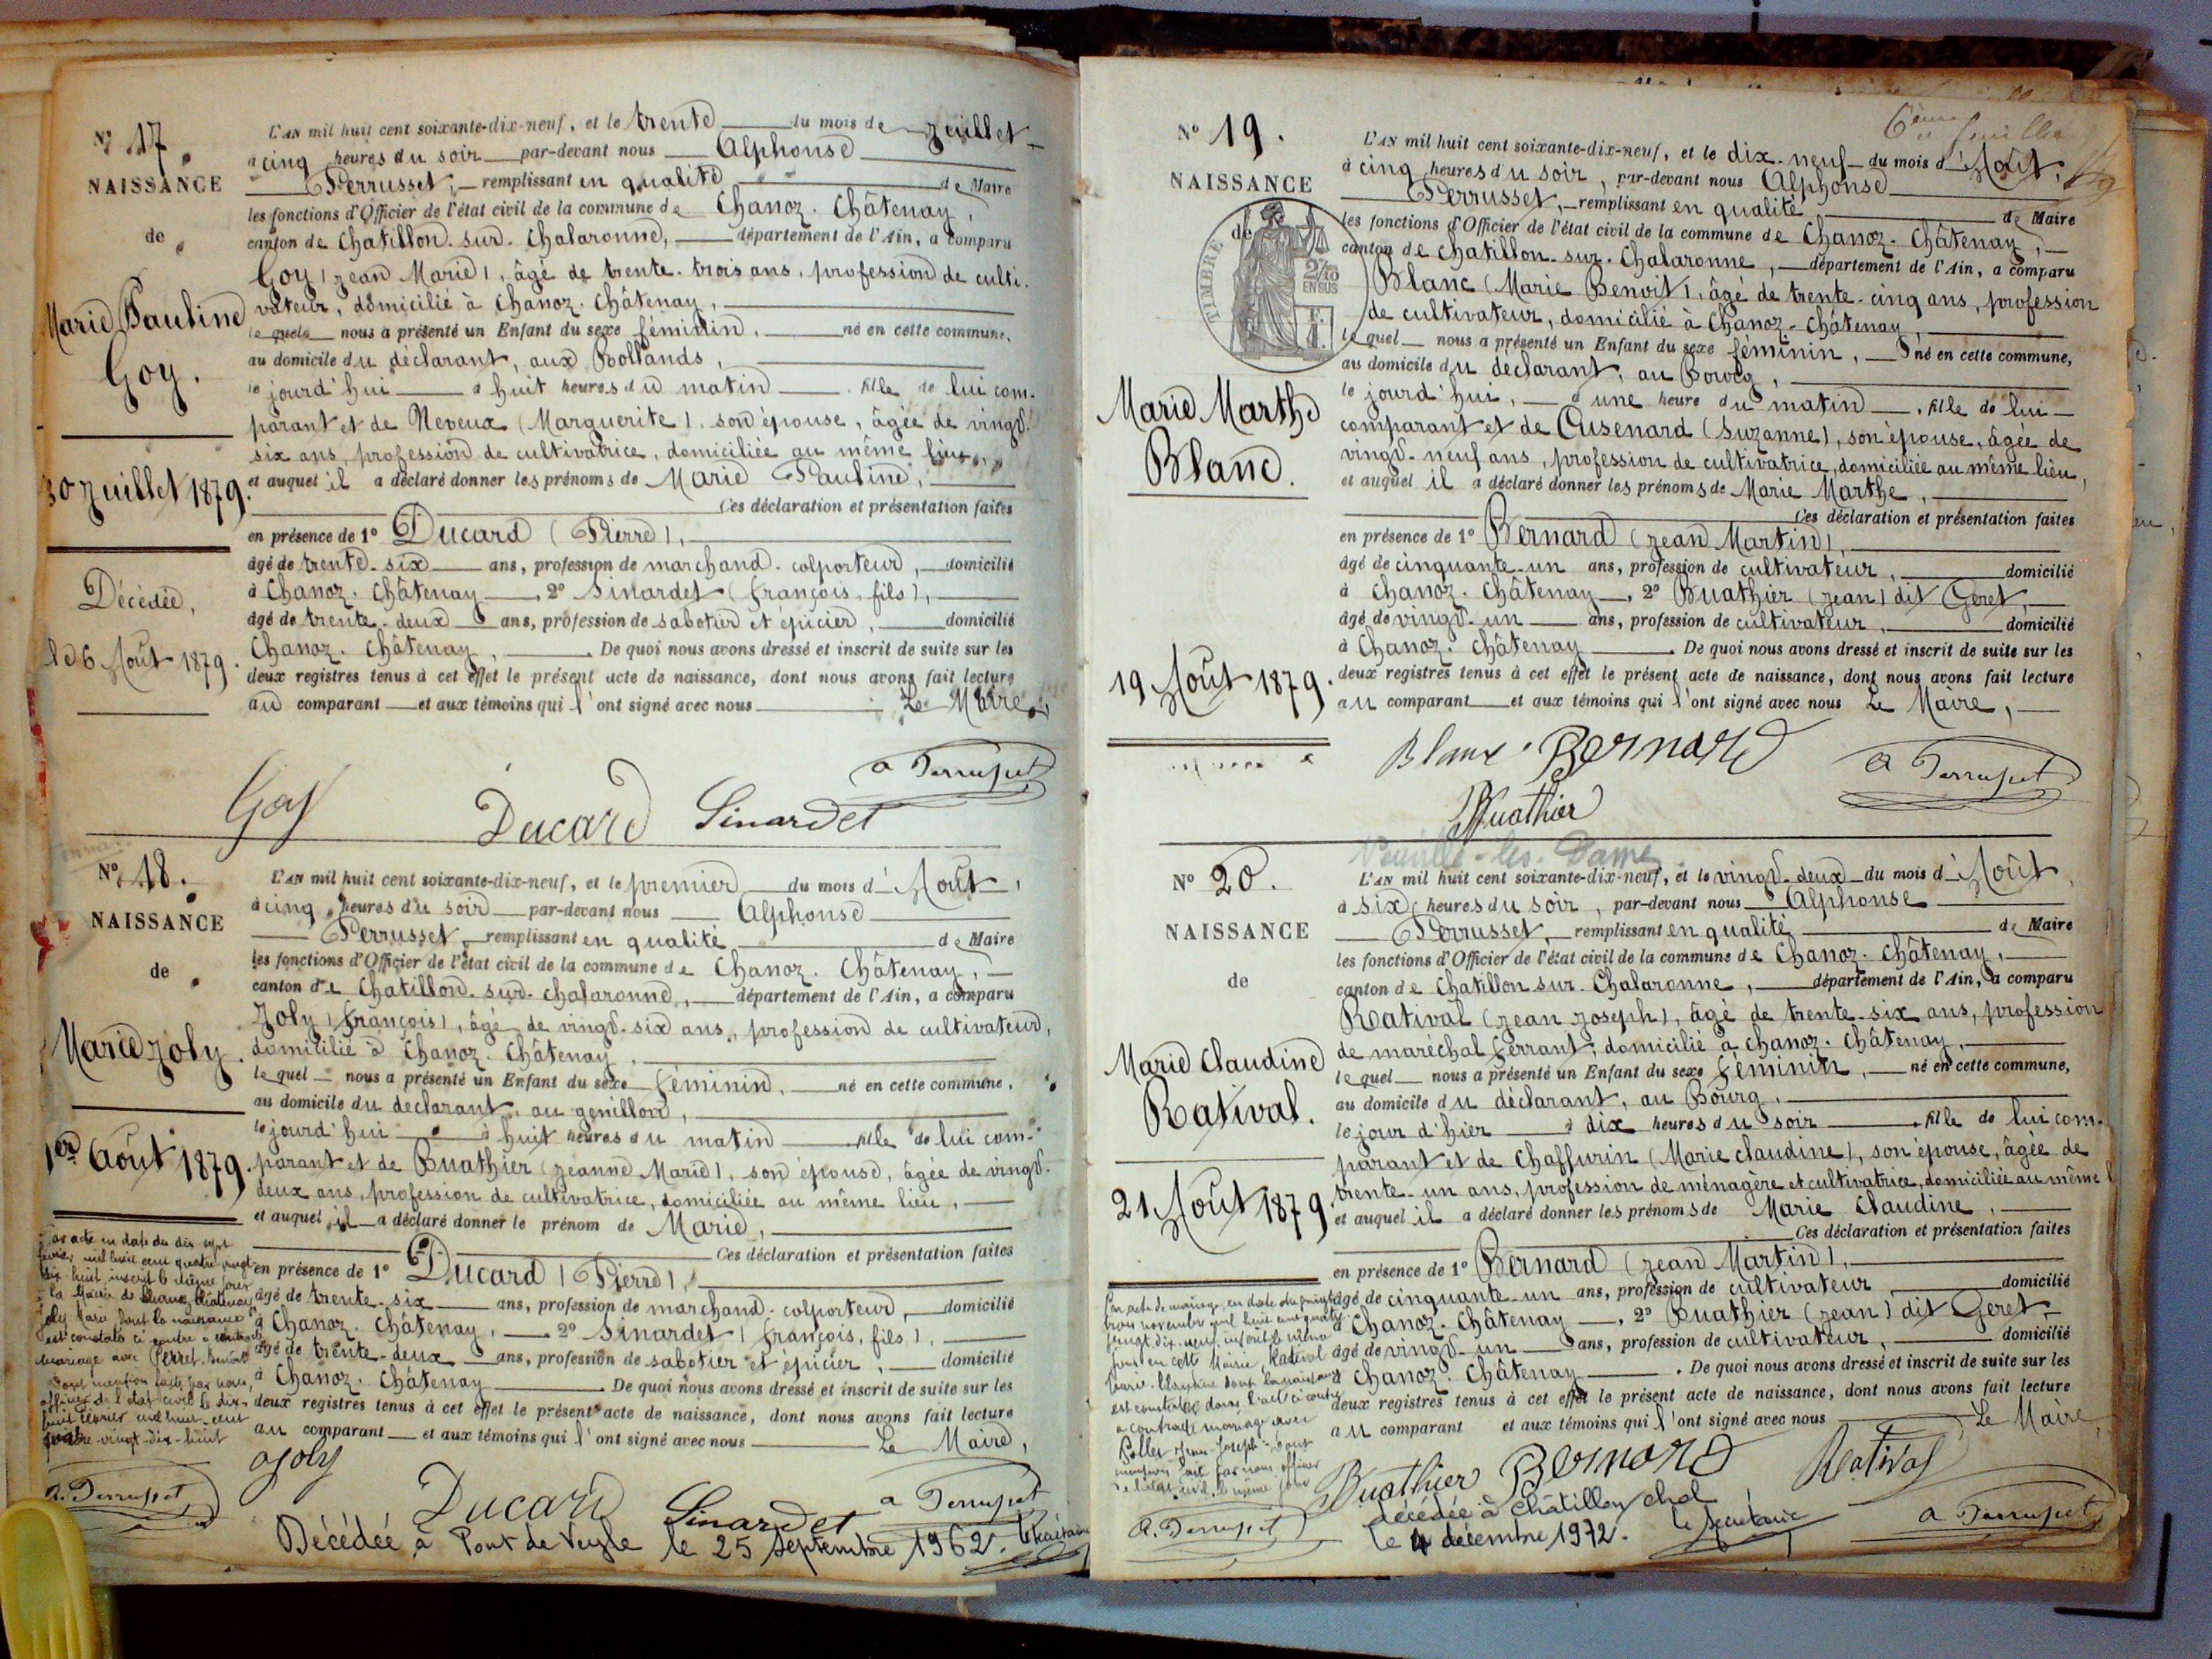 N° 17
NAISSANCE
de
Marie Pauline
Goy.
30 Juillet 1879.
Décédée,
le 6 Août 1879.
L'AN mil huit cent soixante-dix-neuf, et le trente du mois de Juillet
à cinq heures du soir par-devant nous Alphonse
Perrusset, remplissant en qualité de Maire
les fonctions d'Officier de l'état civil de la commune de Chanoz-Châtenay,
canton de Chatillon-sur-Chalaronne, département de l'Ain, a comparu
Goy (Jean Marie), âgé de trente-trois ans, profession de culti-
vateur, domicilié à Chanoz-Châtenay,
lequel nous a présenté un Enfant du sexe féminin, né en cette commune,
au domicile du déclarant, aux Rollands,
le jourd'hui à huit heures du matin fille de lui com-
parant et de Neveux (Marguerite), son épouse, âgée de vingt-
six ans, profession de cultivatrice, domiciliée au même lieu,
et auquel il a déclaré donner les prénoms de Marie Pauline,
Ces déclaration et présentation faites
en présence de 1° Ducard (Pierre),
âgé de trente-six ans, profession de marchand-colporteur, domicilié
à Chanoz-Châtenay, 2° Sinardet (François, fils),
âgé de trente-deux ans, profession de sabotier et épicier, domicilié
Chanoz-Châtenay, De quoi nous avons dressé et inscrit de suite sur les
deux registres tenus à cet effet le présent acte de naissance, dont nous avons fait lecture
au comparant et aux témoins qui l'ont signé avec nous Le Maire,
Goy Ducard Sinardet A Perrusset
N° 18.
NAISSANCE
de
Marie Joly.
1er Août 1879.
L'AN mil huit cent soixante-dix-neuf, et le premier du mois d'Août,
à cinq heures du soir par-devant nous Alphonse
Perrusset, remplissant en qualité de Maire
les fonctions d'Officier de l'état civil de la commune de Chanoz-Châtenay,
canton de Chatillon-sur-Chalaronne, département de l'Ain, a comparu
Joly (François), âgé de vingt-six ans, profession de cultivateur,
domicilié à Chanoz-Châtenay,
lequel nous a présenté un Enfant du sexe féminin, né en cette commune,
au domicile du declarant, au genillon,
le jourd'hui à huit heures du matin fille de lui com-
parant et de Buathier (Jeanne Marie), son épouse, âgée de vingt-
deux ans, profession de cultivatrice, domiciliée au même lieu,
et auquel il a déclaré donner le prénom de Marie,
Ces déclaration et présentation faites
en présence de 1° Ducard (Pierre),
âgé de trente-six ans, profession de marchand-colporteur, domicilié
à Chanoz-Châtenay, 2° Sinardet (François, fils),
âgé de trente-deux ans, profession de sabotier et épicier, domicilié
à Chanoz-Châtenay De quoi nous avons dressé et inscrit de suite sur les
deux registres tenus à cet effet le présent acte de naissance, dont nous avons fait lecture
au comparant et aux témoins qui l'ont signé avec nous Le Maire,
Par acte en date du dix sept
février mil huit cent quatre vingt
dix-huit inscrit le même jour
à la Mairie de Chanoz-Châtenay
Joly Marie dont la naissance
est constatée ci contre a contracté
mariage avec Perret Benoît
Dont mention faite par nous,
officier de l'état civil le dix-
huit février mil huit-cent
quatre-vingt-dix-huit
A. Perrusset
Joly
Ducard Sinardet A Perrusset
Décédée à Pont de Veyle le 25 Septembre 1962.
6ème feuillet
N° 19.
NAISSANCE
de
TIMBRE
2/10
EN SUS
Marie Marthe
Blanc.
19 Août 1879.
L'AN mil huit cent soixante-dix-neuf, et le dix-neuf du mois d'Août,
à cinq heures du soir, par-devant nous Alphonse
Perrusset, remplissant en qualité de Maire
les fonctions d'Officier de l'état civil de la commune de Chanoz-Châtenay,
canton de Chatillon-sur-Chalaronne, département de l'Ain, a comparu
Blanc (Marie Benoit), âgé de trente-cinq ans, profession
de cultivateur, domicilié à Chanoz-Châtenay,
lequel nous a présenté un Enfant du sexe féminin, né en cette commune,
au domicile du déclarant, au Bourg,
le jourd'hui, à une heure du matin, fille de lui
comparant et de Cusenard (Suzanne), son épouse, âgée de
vingt-neuf ans, profession de cultivatrice, domiciliée au même lieu,
et auquel il a déclaré donner les prénoms de Marie Marthe,
Ces déclaration et présentation faites
en présence de 1° Bernard (Jean Martin),
âgé de cinquante-un ans, profession de cultivateur, domicilié
à Chanoz-Châtenay, 2° Buathier (Jean) dit Geret,
âgé de vingt-un ans, profession de cultivateur, domicilié
à Chanoz-Châtenay. De quoi nous avons dressé et inscrit de suite sur les
deux registres tenus à cet effet le présent acte de naissance, dont nous avons fait lecture
au comparant et aux témoins qui l'ont signé avec nous Le Maire,
Blanc Bernard A Perrusset
Buathier
Neuville-les-Dames
N° 20.
NAISSANCE
de
Marie Claudine
Rativat.
21 Août 1879
L'AN mil huit cent soixante-dix-neuf, et le vingt-deux du mois d'Août,
à six heures du soir, par-devant nous Alphonse
Perrusset, remplissant en qualité de Maire
les fonctions d'Officier de l'état civil de la commune de Chanoz-Châtenay,
canton de Chatillon sur-Chalaronne, département de l'Ain, a comparu
Rativat (Jean Joseph), âgé de trente-six ans, profession
de maréchal ferrant, domicilié à Chanoz-Châtenay,
lequel nous a présenté un Enfant du sexe féminin, né en cette commune,
au domicile du déclarant, au Bourg,
le jour d'hier à dix heures du soir, fille de lui com-
parant et de Chaffurin (Marie Claudine), son épouse, âgée de
trente-un ans, profession de ménagère et cultivatrice, domiciliée au même l
et auquel il a déclaré donner les prénoms de Marie Claudine,
Ces déclaration et présentation faites
en présence de 1° Bernard (Jean Martin),
âgé de cinquante-un ans, profession de cultivateur domicilié
à Chanoz-Châtenay, 2° Buathier (Jean) dit Geret,
âgé de vingt-un ans, profession de cultivateur, domicilié
à Chanoz-Châtenay. De quoi nous avons dressé et inscrit de suite sur les
deux registres tenus à cet effet le présent acte de naissance, dont nous avons fait lecture
au comparant et aux témoins qui l'ont signé avec nous Le Maire
Par acte de mariage en date du vingt
trois novembre mil huit cent quatre
vingt dix-neuf inscrit le même
jour en cette Mairie Rativat
Marie-Claudine dont la naissance
est constatée dans l'acte ci-contre
a contracté mariage avec
Jean-Joseph Dont
mention faite par nous officier
de l'état civil le même jour
A. Perrusset
Buathier Bernard Rativat
décédée à Châtillon s/ chal
le 4 décembre 1972. Le Secrétaire
A Perrusset